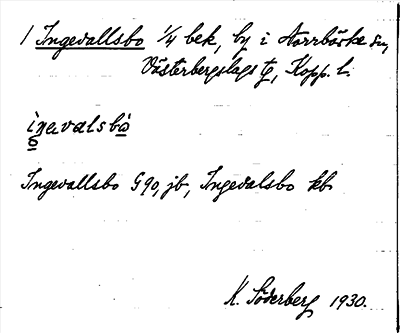 1 Ingevallsbo 1/4 bek, by i Norrbärke sn,
Västerbergslags tg, Kopp. l.
ìŋevalsbò
Ingevallsbo G90, jb, Ingevalsbo kb
K. Söderberg 1930.